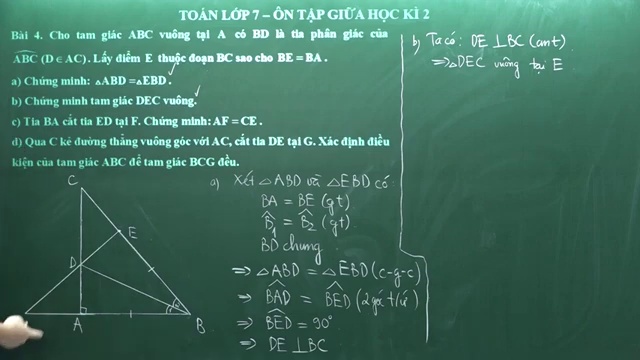 TOÁN LỚP 7 – ÔN TẬP GIỮA HỌC KÌ 2
Bài 4. Cho tam giác ABC vuông tại A có BD là tia phân giác của
ABC (D ∈ AC). Lấy điểm E thuộc đoạn BC sao cho BE = BA.
a) Chứng minh: △ABD = △EBD.
b) Chứng minh tam giác DEC vuông.
c) Tia BA cắt tia ED tại F. Chứng minh: AF = CE.
d) Qua C kẻ đường thẳng vuông góc với AC, cắt tia DE tại G. Xác định điều
kiện của tam giác ABC để tam giác BCG đều.
C
E
D
A
B
a) Xét △ABD và △EBD có
BA = BE (gt)
B̂1 = B̂2 (gt)
BD chung
⇒ △ABD = △EBD (c-g-c)
⇒ BAD = BED (2 góc t/ứ)
⇒ BED = 90°
⇒ DE ⊥ BC
b) Ta có: DE ⊥ BC (cmt)
⇒ △DEC vuông tại E